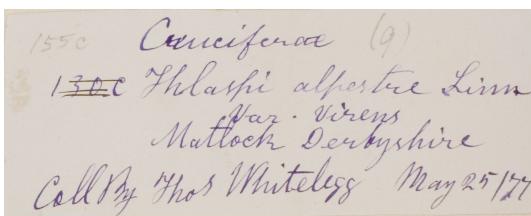 155c Cruciferae (9)
130c Thlaspi alpestre Linn
Var. Virens
Matlock Derbyshire
Coll By Thos Whitelegg May 25/77